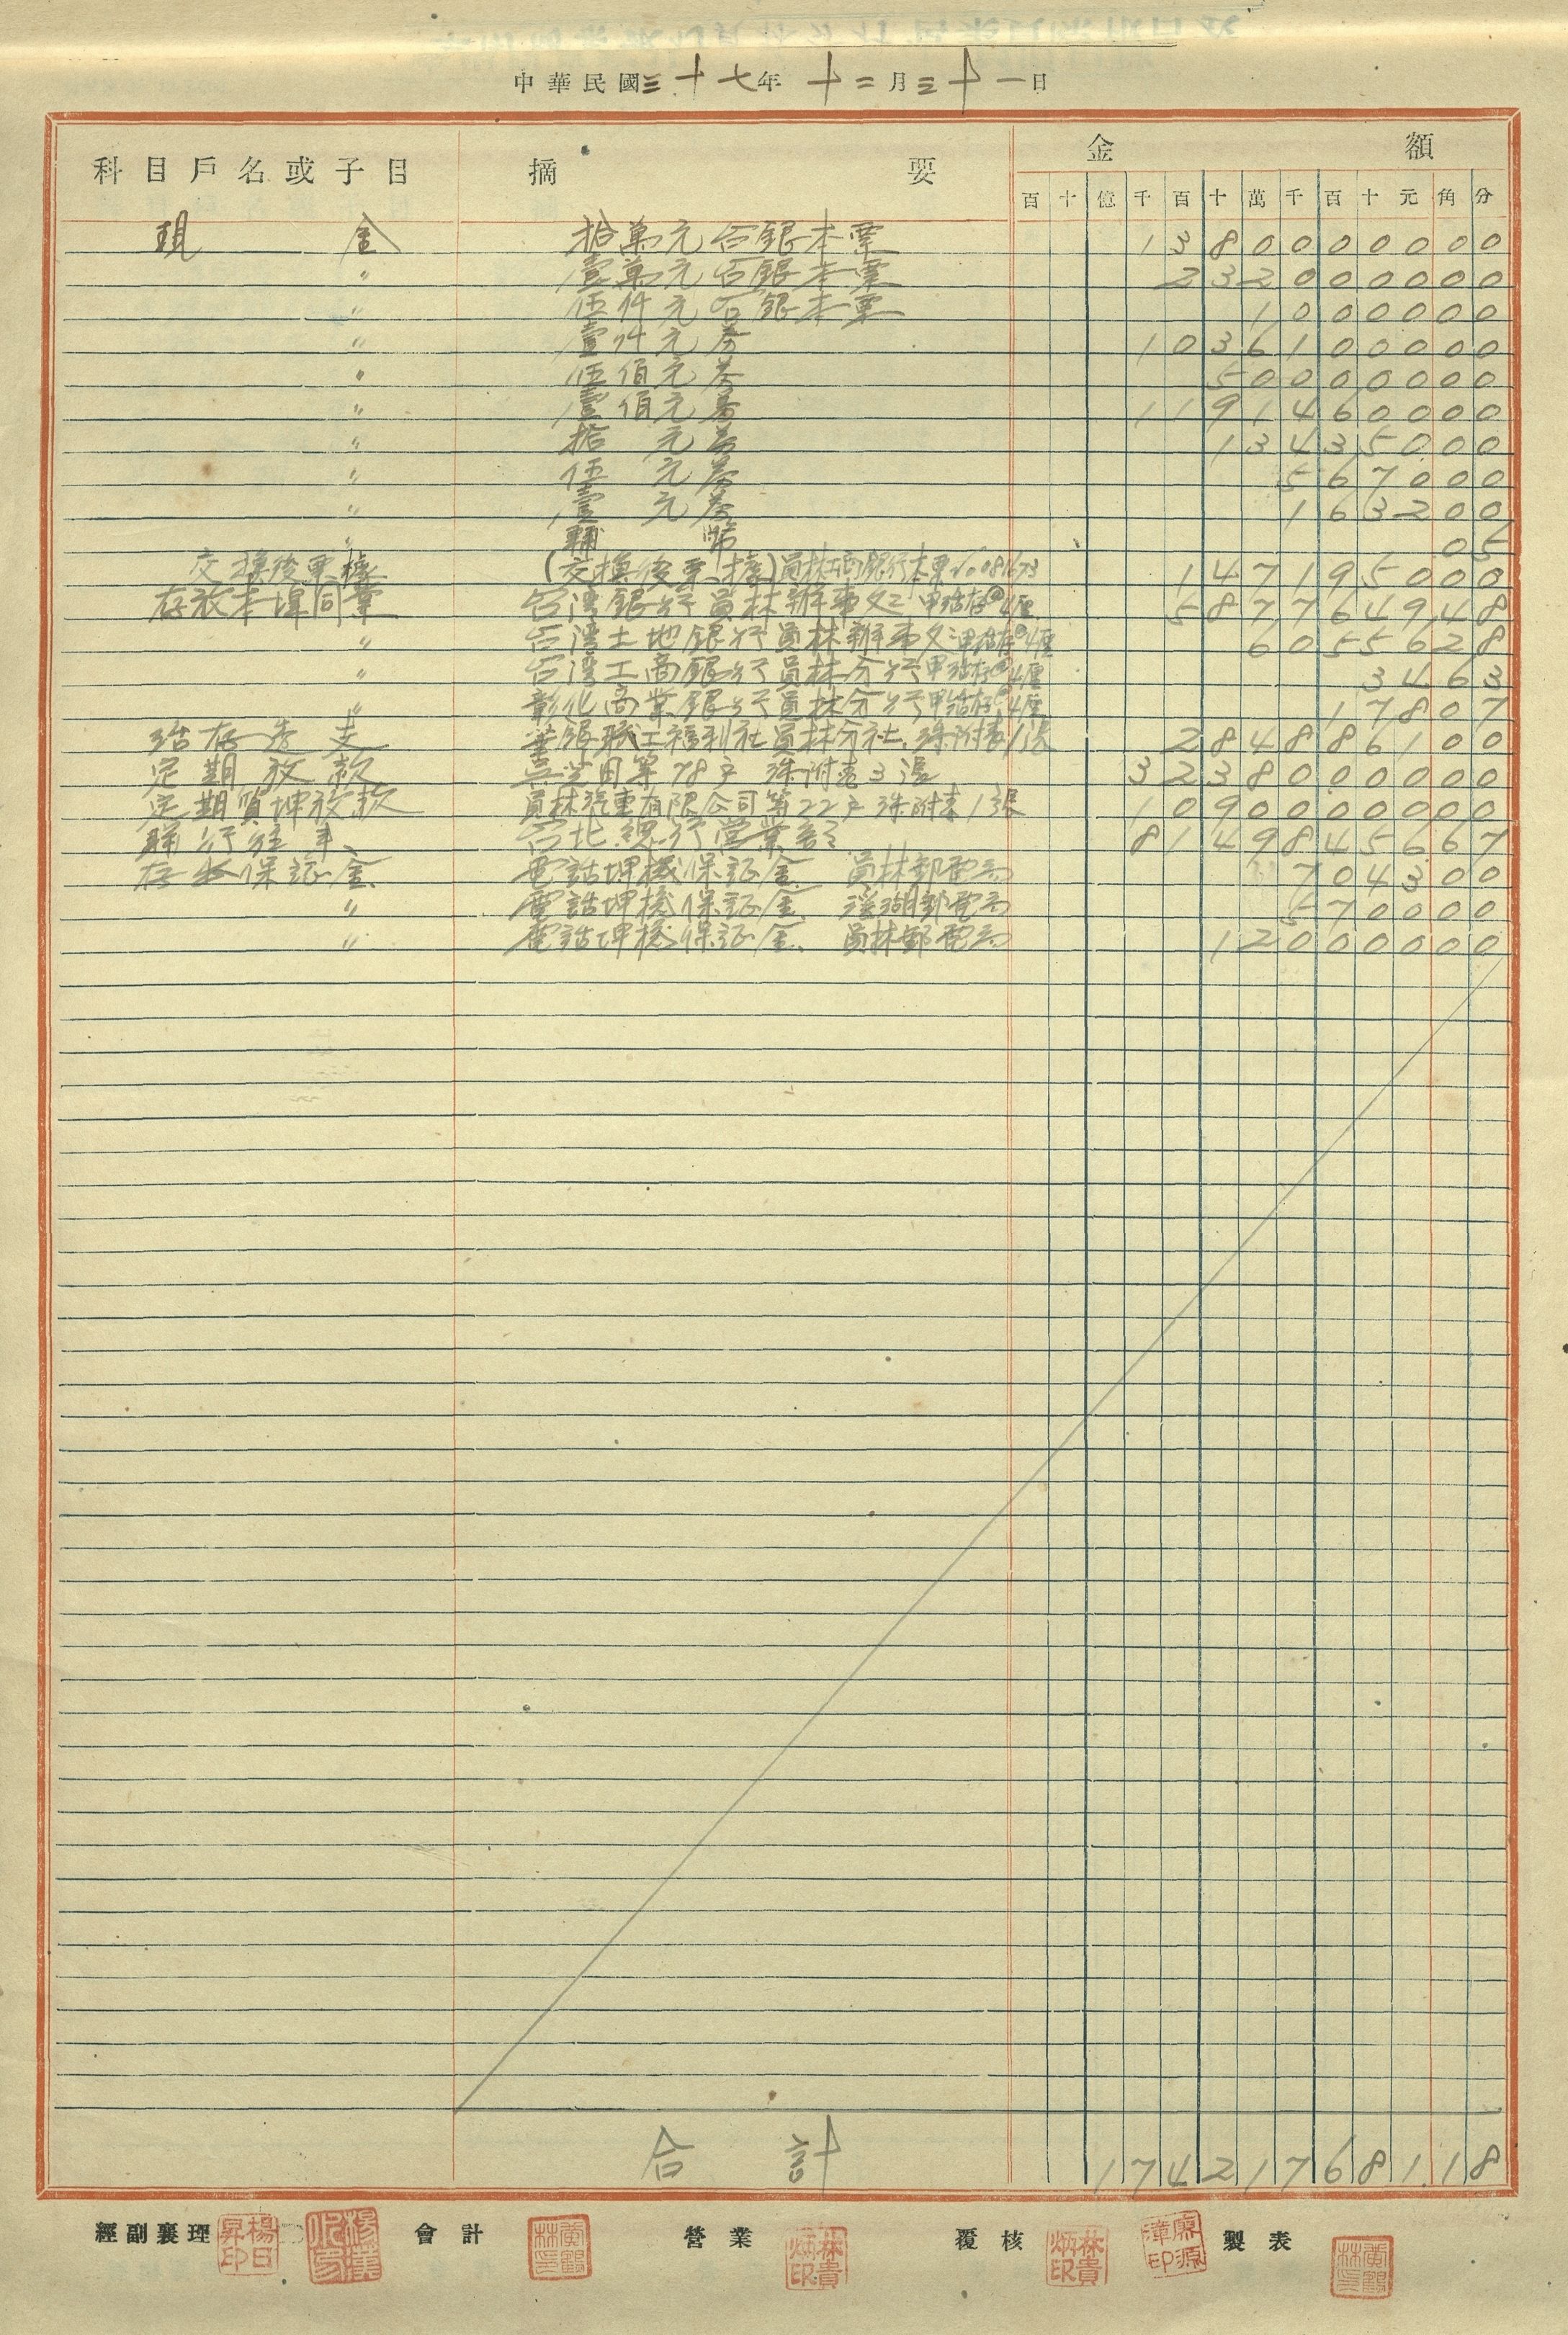 中華民國三十七年十二月三十一日
科目戶名或子目 摘要 金額
百十億千百十萬千百十元角分
現金 拾萬元台銀本票 1380000000
〃 壹萬元台銀本票 232000000
〃 伍仟元台銀本票 1000000
〃 壹仟元券 1036100000
〃 伍佰元券 50000000
〃 壹佰元券 1191460000
〃 拾元券 13435000
〃 伍元券 567000
〃 壹元券 163200
〃 輔幣 05
交換後票據 (交換後票據)員林 銀行本票 147195000
存放本埠同業 台湾銀行員林辦事処 甲活存@4厘 587764948
〃 台湾土地銀行員林辦事処 甲活存@4厘 60555628
〃 台湾工商銀行員林分行 甲活存@4厘 3463
〃 彰化商業銀行員林分行 甲活存@4厘 17807
活存透支 華銀職工福利社員林分社 附表1張 284886100
定期放款 等78戶 附表3張 3238000000
定期質押放款 員林汽車有限公司等22戶 附表1張 1090000000
聯行往來 台北總行營業部 8149845667
存出保証金 電話押機保証金 員林郵電局 704300
〃 電話押機保証金 溪湖郵電局 570000
〃 電話押機保証金 員林郵電局 12000000
合計 174217681.18
經副襄理 楊日昇印 會計 營業 林貴炳印 覆核 林貴炳印 廖源漳印 製表